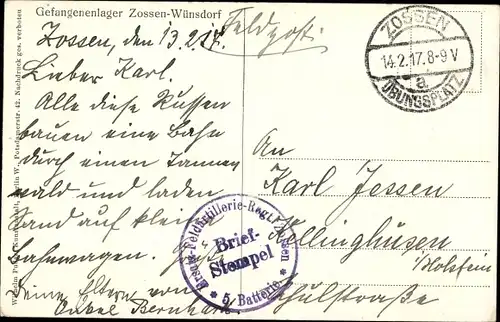 Gefangenenlager Zossen-Wünsdorf
Feldpost.
Zossen, den 13.2.17.
Lieber Karl.
Alle diese Russen
bauen eine Bahn
durch einen Tannen
wald und laden
Sand auf kleine
Bahnwagen.
Deine Eltern von
Onkel Bernhard
ZOSSEN
14.2.17.8-9V
a
ÜBUNGSPLATZ
An
Karl Jessen
Kellinghusen
i/Holstein
Schulstraße
Feldartillerie-Regt.
Zossen
Brief-
Stempel
* 5. Batterie *